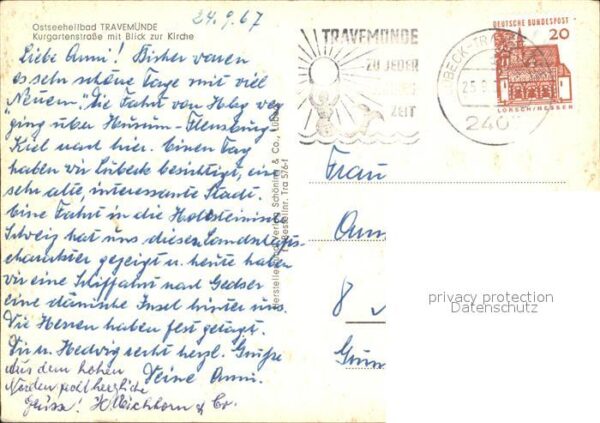 24.9.67
Ostseeheilbad TRAVEMÜNDE
Kurgartenstraße mit Blick zur Kirche
Liebe Anni! Bisher waren
es sehr schöne Tage mit viel
Neuem. Die Fahrt von
ging über Husum-Flensburg
Kiel nach hier. Einen Tag
haben wir Lübeck besichtigt, eine
sehr alte, interessante Stadt.
Eine Fahrt in die Holsteinische
Schweiz hat uns diesen Landschafts
charakter gezeigt u. heute haben
wir eine Schiffahrt nach Gedser
eine dänische Insel hinter uns.
Die Herren haben fest getagt.
Dir u. Hedwig recht herzl. Grüße
Deine Anni.
Aus dem hohen
Norden recht herzliche
Grüsse! H. Eichhorn & Co.
Hersteller und Verlag Schöning & Co., Lübeck
Bestellnr. Tra 576f
TRAVEMÜNDE
ZU JEDER
ZEIT
LÜBECK-TRA
25.9.
240
DEUTSCHE BUNDESPOST
20
LORSCH/HESSEN
Frau
Ann
8
privacy protection
Datenschutz